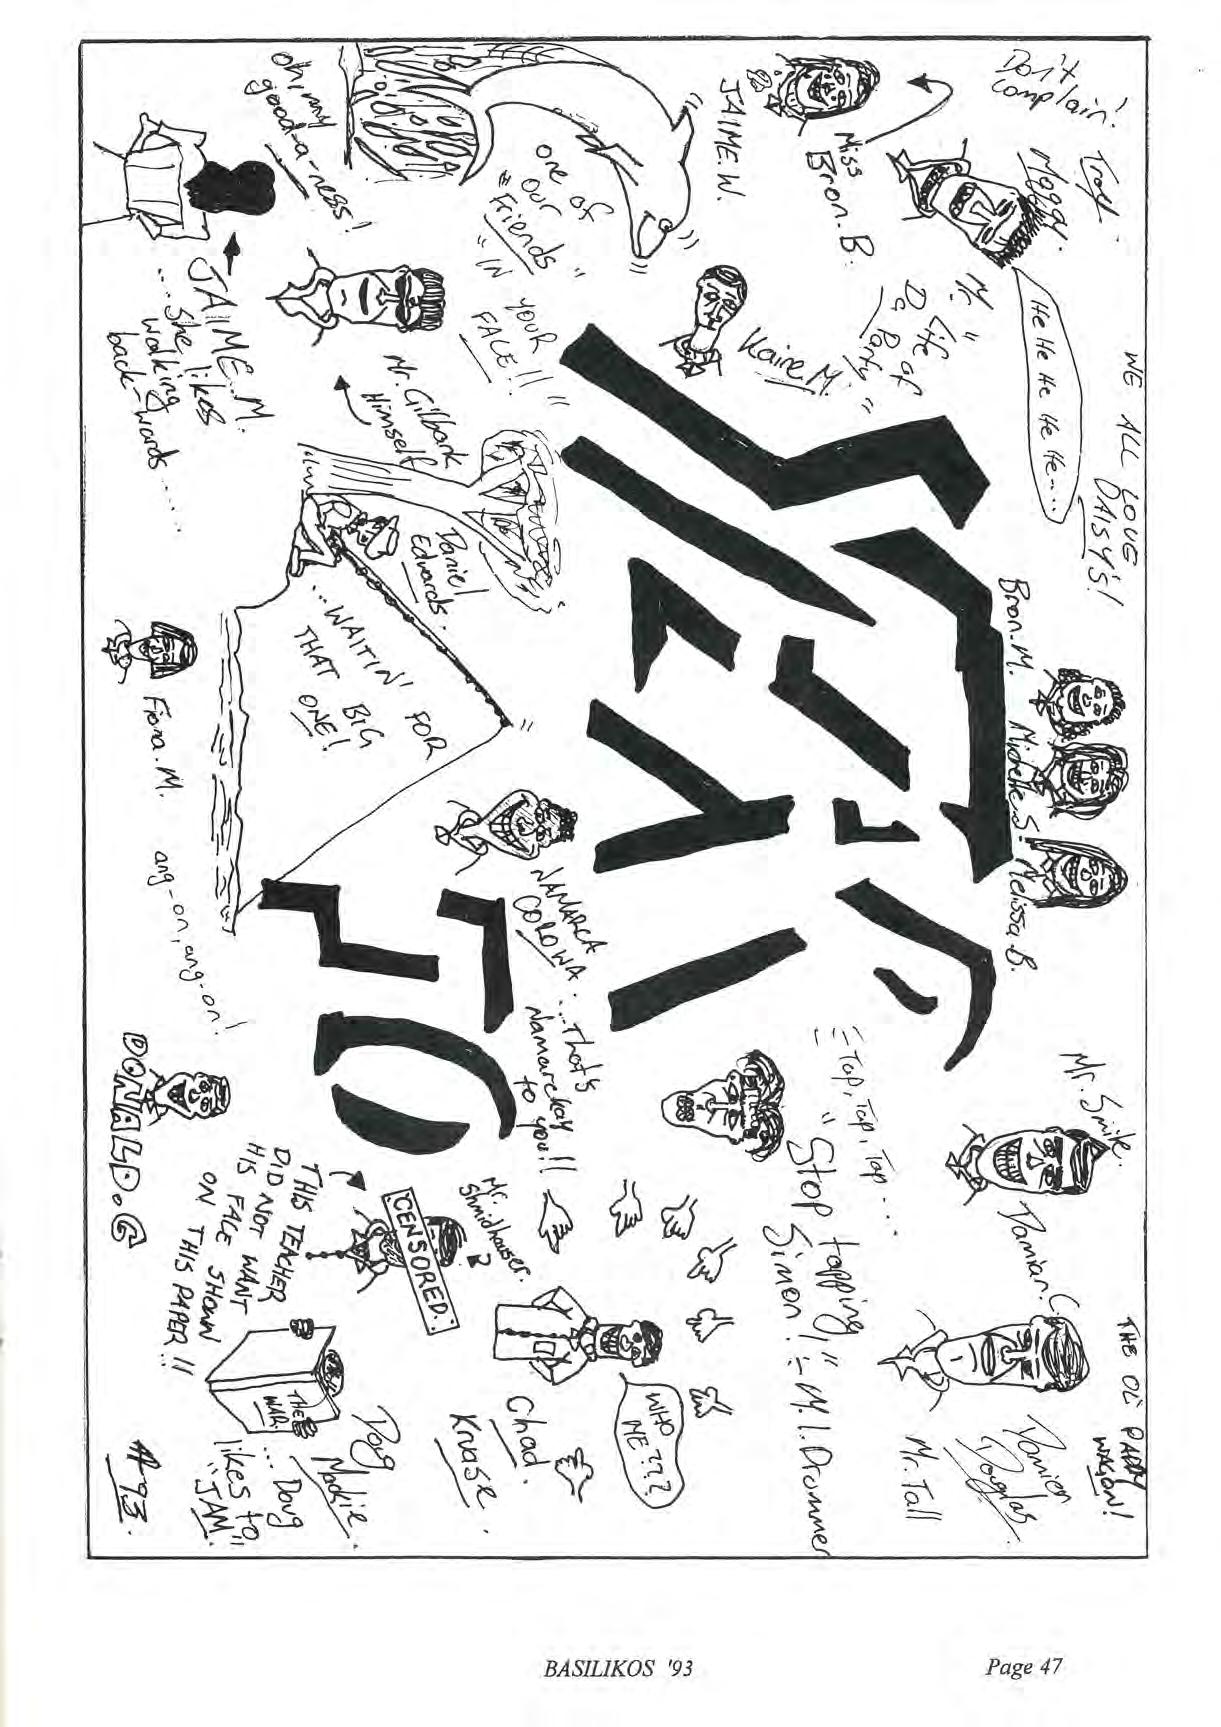 Don't
Complain!
Troy
Moggy.
He He He He He He....
WE ALL LOVE
DAISY'S!
Mr "Life of
Da Party"
Miss
Bron.B.
JAIME.W.
Kaire M.
one of
our
"Friends"
"IN YOUR
FACE!!"
oh, my
good-a-ness!
JAIME.M.
....She likes
walking
back-wards......
Mr. Gilbank
Himself
Daniel
Edwards.
...WAITIN' FOR
THAT BIG
ONE!
Bron.M. Michelle S. Melissa.B.
Fiona.M.
ang-on, ang-on!
NAMARCA
COROWA.
...that's
Namarckay
to you!!
DONALD.G
THIS TEACHER
DID NOT WANT
HIS FACE SHOWN
ON THIS PAPER...!!
CENSORED.
Mr.
Shmidhauser.
?
Tap, Tap, Tap....
"Stop tapping
Simon!" - M.I. Drommer
Mr. Smile.
Damian.C.
THE OL' PADDY
WAGON!
Damien
Douglas
Mr. Tall
WHO
ME???
Chad.
Kruase.
THE
WAR.
Doug
Mackie.
...Doug
likes to
"JAM"
A 93.
BASILIKOS '93
Page 47